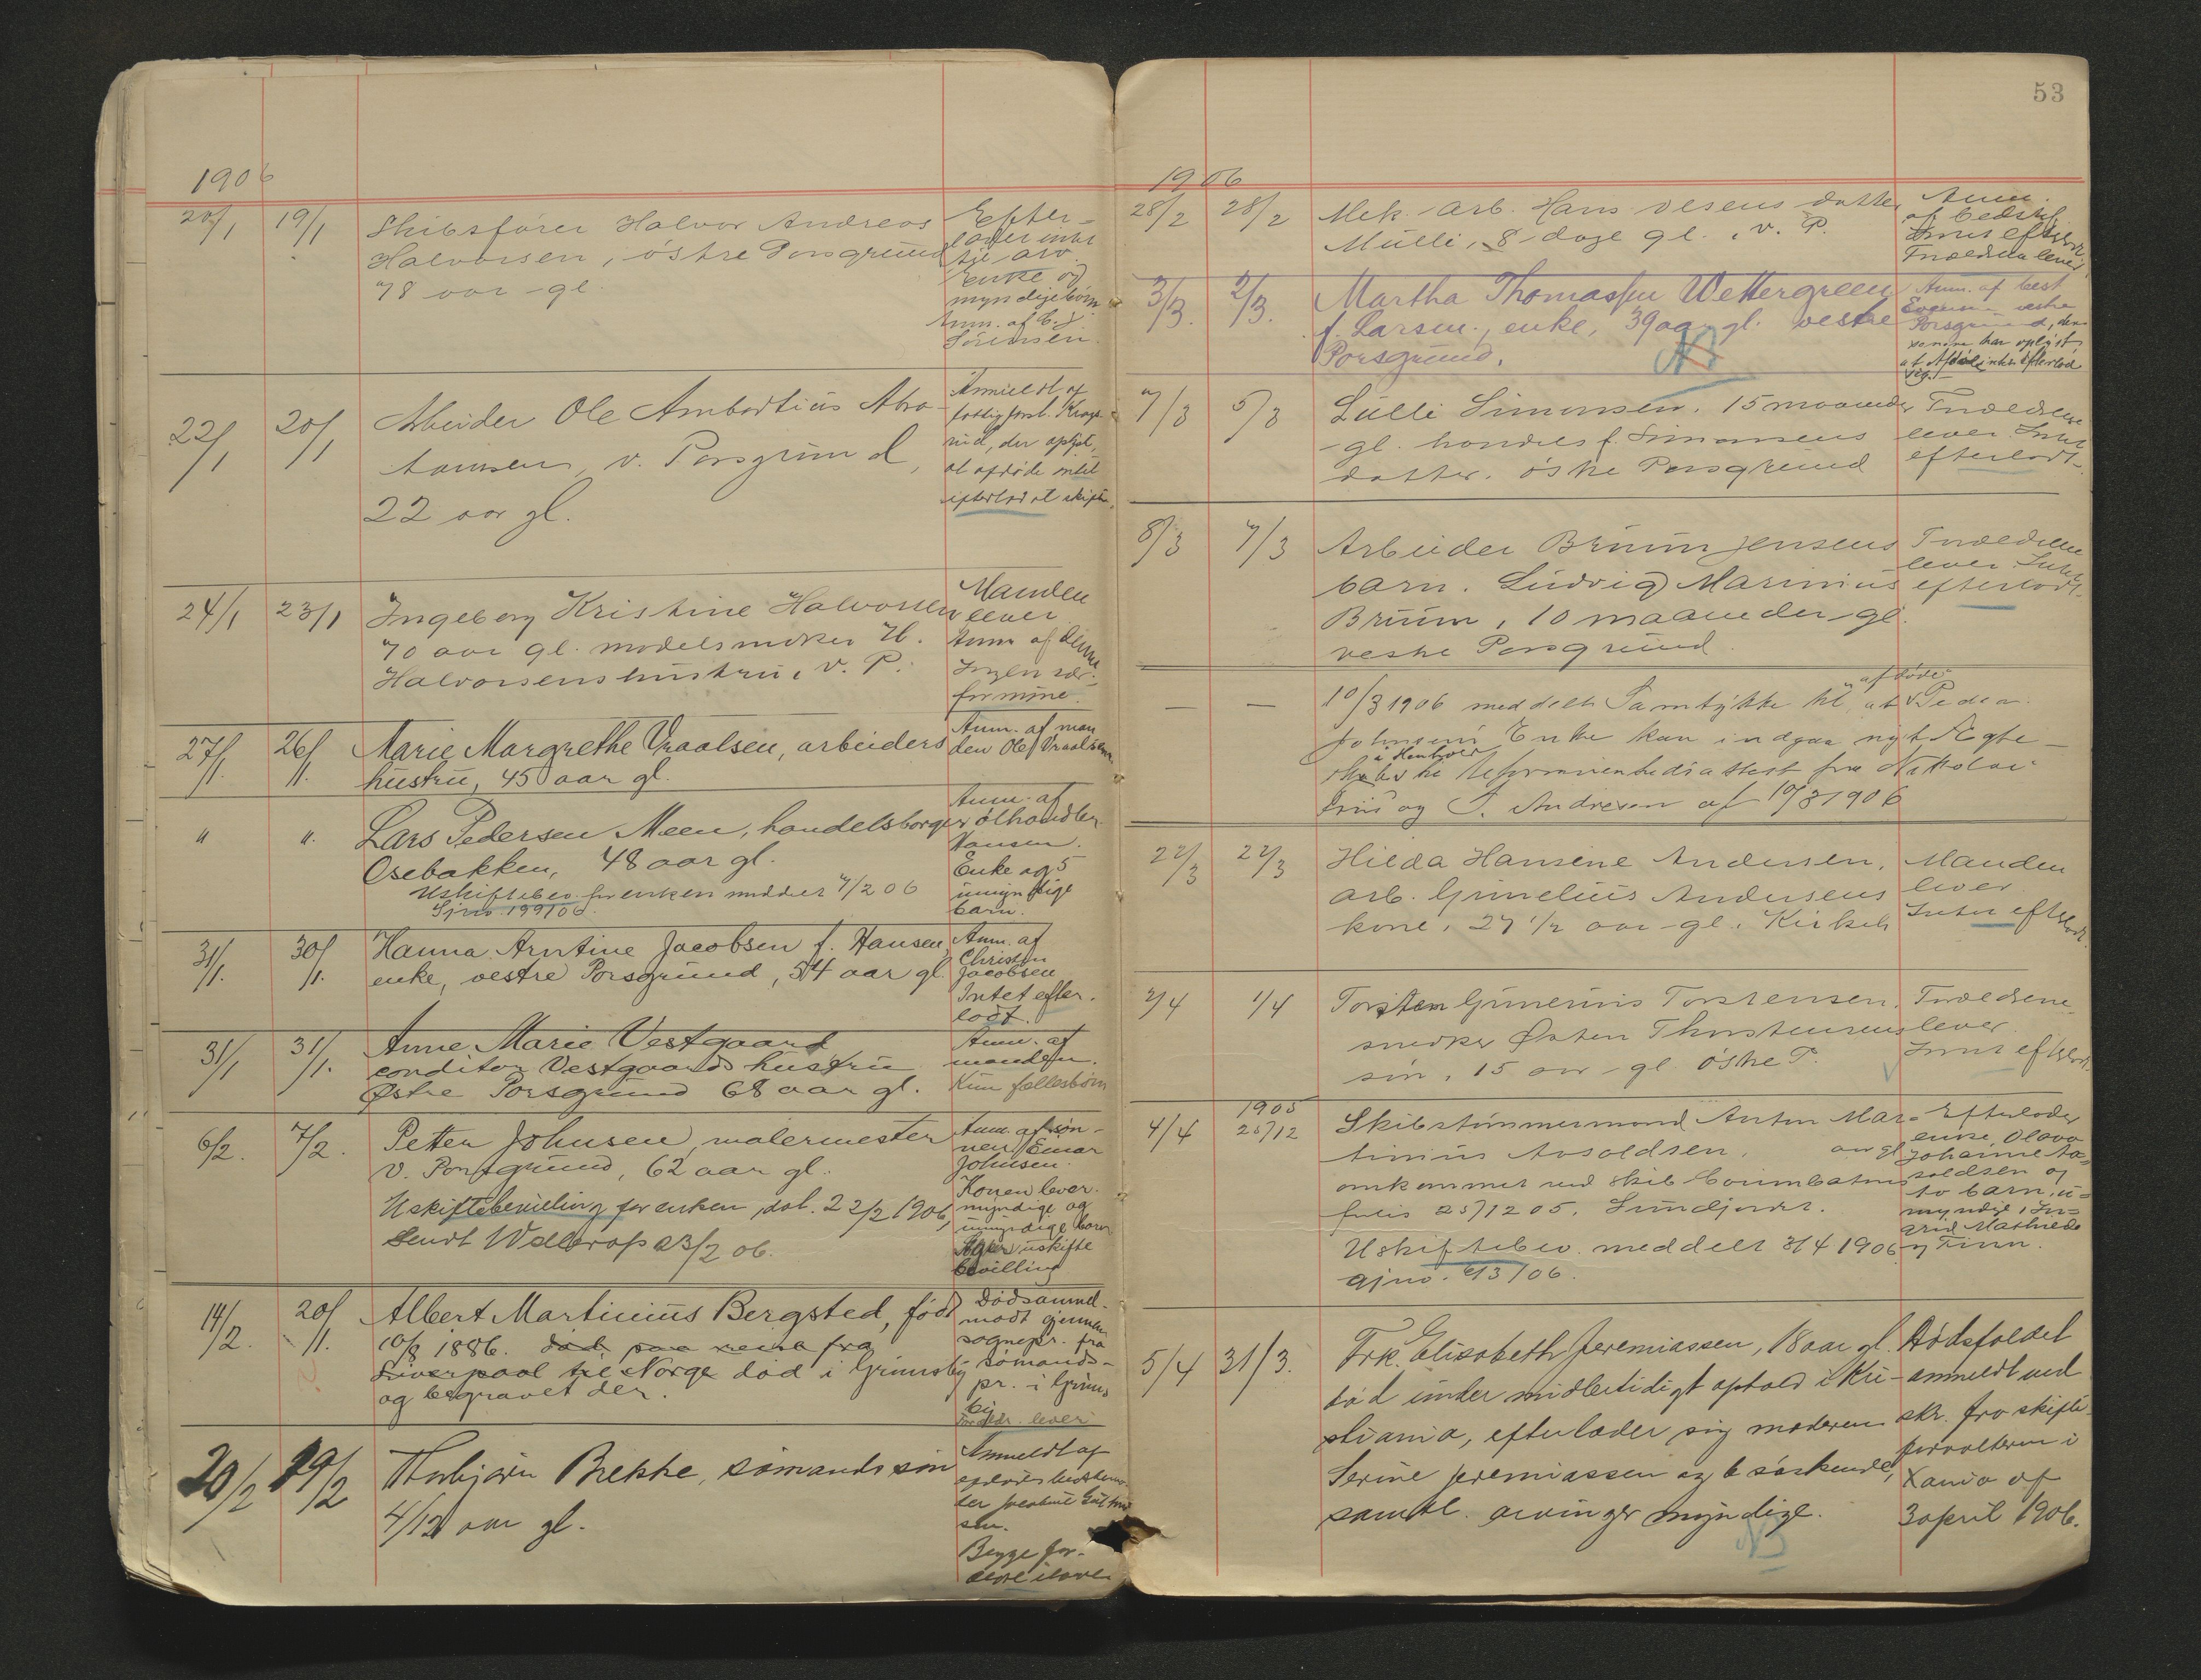 1906
20/1 19/1 Skibsfører Halvor Andreas
Halvorsen, østre Porsgrund
78 aar gl.
Efter-
lader intet
Enke og
myndige børn
Anm. af C. J.
Sørensen.
22/1 20/1 Arbeider Ole Ambortius Abra-
hamsen, v. Porsgrund,
22 aar gl.
Anmeldt af
fattigforst.
rud, der opgal,
at afdøde intet
efterlod at skifte.
24/1 23/1 Ingeborg Kristine Halvorsen
70 aar gl. modelsnekker H.
Halvorsens hustru, v. P.
Manden
lever
Anm af denne
Ingen sær-
formue.
27/1. 26/1. Marie Margrethe Vraalsen, arbeiders
hustru, 45 aar gl.
Anm. af man
den Ole Vraalsen
" ". Lars Pedersen Meen, handelsborger
Osebakken, 48 aar gl.
Uskiftebev. for enken meddelt 7/2 06
Sjno. 199/06.
Anm. af
ølhandler
Hansen.
Enke og 5
umyndige
barn.
31/1. 30/1. Hanna Arntine Jacobsen f. Hansen
enke, vestre Porsgrund, 54 aar gl.
Anm. af
Christen
Jacobsen
Intet efter-
ladt.
31/1 31/1. Anne Marie Vestgaard
conditor Vestgaards hustru
Østre Porsgrund 68 aar gl.
Anm. af
manden.
Kun fællesbørn
6/2. 7/2. Petter Johnsen, malermester
V. Porsgrund, 62 aar gl.
Uskiftebevilling for enken, dat. 22/2 1906,
Sendt 23/2 06.
Anm. af søn-
nen Einar
Johnsen.
Konen lever.
myndige og
umyndige barn
uskifte
bevilling
14/2. 20/1. Albert Martinius Bergsted, født
10/8 1886. død paa reise fra
Liverpool til Norge død i Grimsby
og begravet der.
Dødsanmel-
modt gjennem
sognepr. fra
sømands-
pr. i Grims
by
Forældr. lever
20/2 19/2 Thorbjørn Brekke, sømands søn
4/12 aar gl.
Anmeldt af
Begge for-
ældre ilave
53
1906
28/2 28/2 Mek. arb. Hans Olsens datter
Mulli, 8 dage gl., v. P.
Anm.
af bedstef.
Intet efterladt.
Forældrene lever
3/3. 2/3. Martha Thomassen Wettergreen
f. Larsen, enke, 39 aar gl. vestre
Porsgrund.
NB
Anm. af best
vestre
Porsgrund, den
senere har oplyst,
at Afdøde intet efterlod
sig.
7/3 5/3 Lulli Simonsen, 15 maaneder
gl. handelsf. Simonsens
datter. østre Porsgrund
Forældrene
lever. Intet
efterladt.
8/3 7/3 Arbeider Bruun Jensens
barn. Ludvig Marinius
Bruun, 10 maaneder gl.
vestre Porsgrund.
Forældrene
lever. Intet
efterladt.
— — 10/3 1906 meddelt Samtykke til, at afdøde Peder
Johnsens Enke kan indgaa nyt Ægte-
skab i Henhold til Uformuenhedsattest fra Nikolai
Friis og T. Andresen af 10/3 1906
22/3 22/3 Hilda Hansine Andersen,
arb. Gunelius Andersens
kone, 27 1/2 aar gl.
Manden
lever
Intet efterladt.
2/4 1/4 Torsten Gunerius Torstensen,
snedker Østen Thorstensens
søn, 15 aar gl Østre P.
Forældrene
lever.
Intet efterladt.
4/4 1905 25/12 Skibstømmermand Anton Mar-
tinius Aasoldsen, aar gl
omkommet ved skib
forlis 25/12 05.
Uskiftebev. meddelt 3/4 1906
Sjno. 613/06.
Efterlader
enke, Olava
Johanne Aa-
soldsen og
to barn, u-
myndige, In-
grid Mathilde
og Finn.
5/4 31/3. Frk. Elisabeth Jeremiassen, 18 aar gl.
død under midlertidigt ophold i Kri-
stiania, efterlader sig moderen
Serine Jeremiassen og 6 søskende,
samtl. arvinger myndige.
NB
Dødsfaldet
anmeldt ved
skr. fra skifte-
forvalteren i
Xania af
3 april 1906.